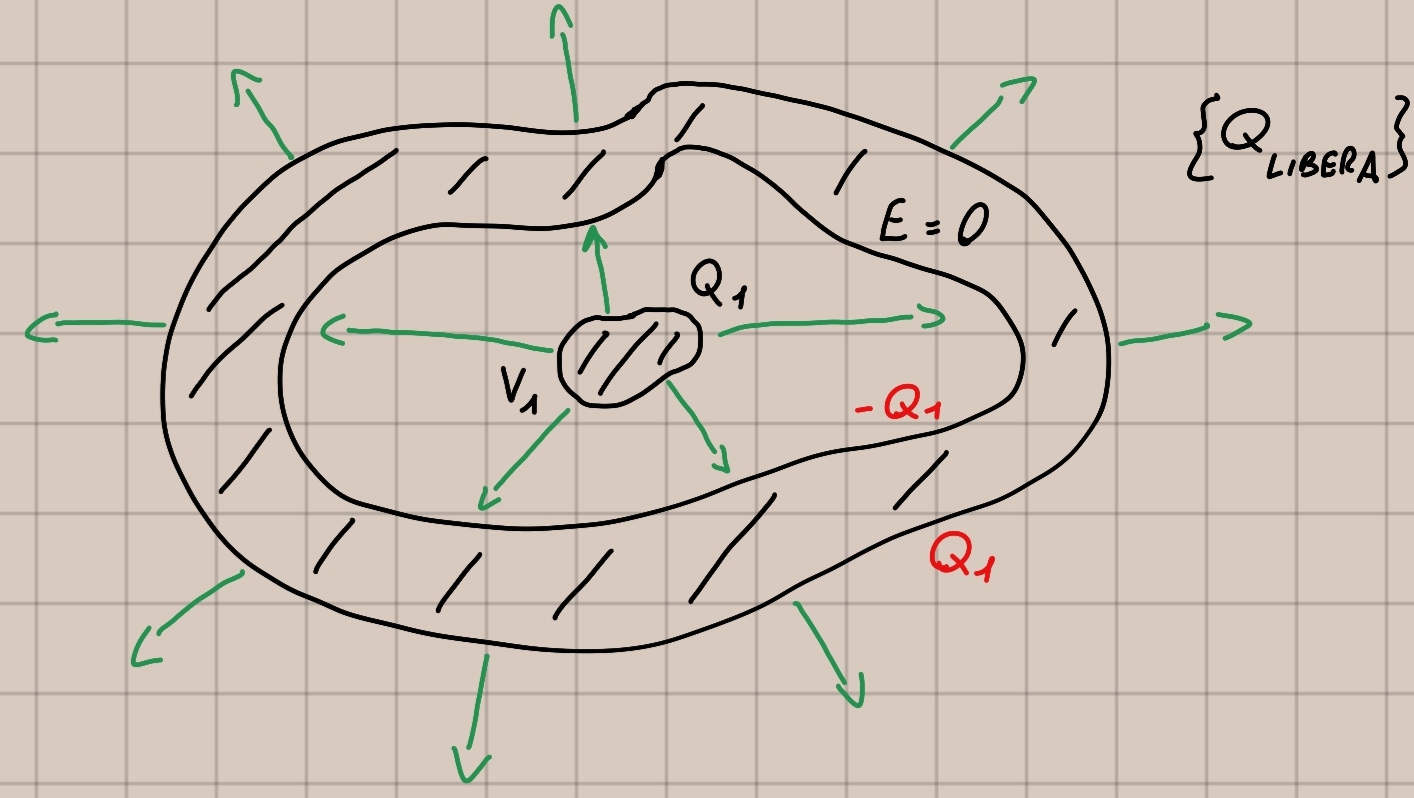 {Q LIBERA}
E = 0
Q1
V1
- Q1
Q1